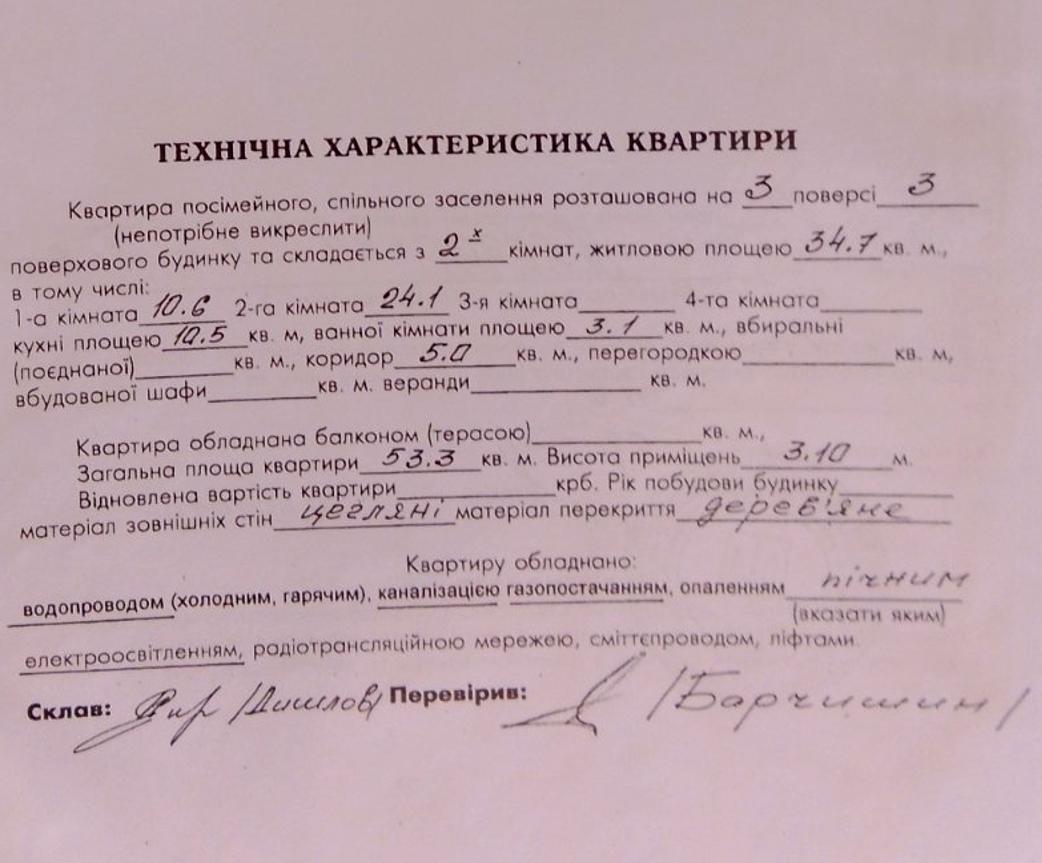 ТЕХНІЧНА ХАРАКТЕРИСТИКА КВАРТИРИ
Квартира посімейного, спільного заселення розташована на 3 поверсі 3
(непотрібне викреслити)
поверхового будинку та складається з 2х кімнат, житловою площею 34.7 кв. м.,
в тому числі:
1-а кімната 10.6 2-га кімната 24.1 3-я кімната 4-та кімната
кухні площею 10.5 кв. м, ванної кімнати площею 3.1 кв. м., вбиральні
(поєднаної) кв. м., коридор 5.0 кв. м., перегородкою кв. м,
вбудованої шафи кв. м. веранди кв. м.
Квартира обладнана балконом (терасою) кв. м.,
Загальна площа квартири 53.3 кв. м. Висота приміщень 3.10 м.
Відновлена вартість квартири крб. Рік побудови будинку
матеріал зовнішніх стін цегляні матеріал перекриття дерев'яне
Квартиру обладнано:
водопроводом (холодним, гарячим), каналізацією газопостачанням, опаленням пічним
(вказати яким)
електроосвітленням, радіотрансляційною мережею, сміттєпроводом, ліфтами.
Склав: Перевірив: